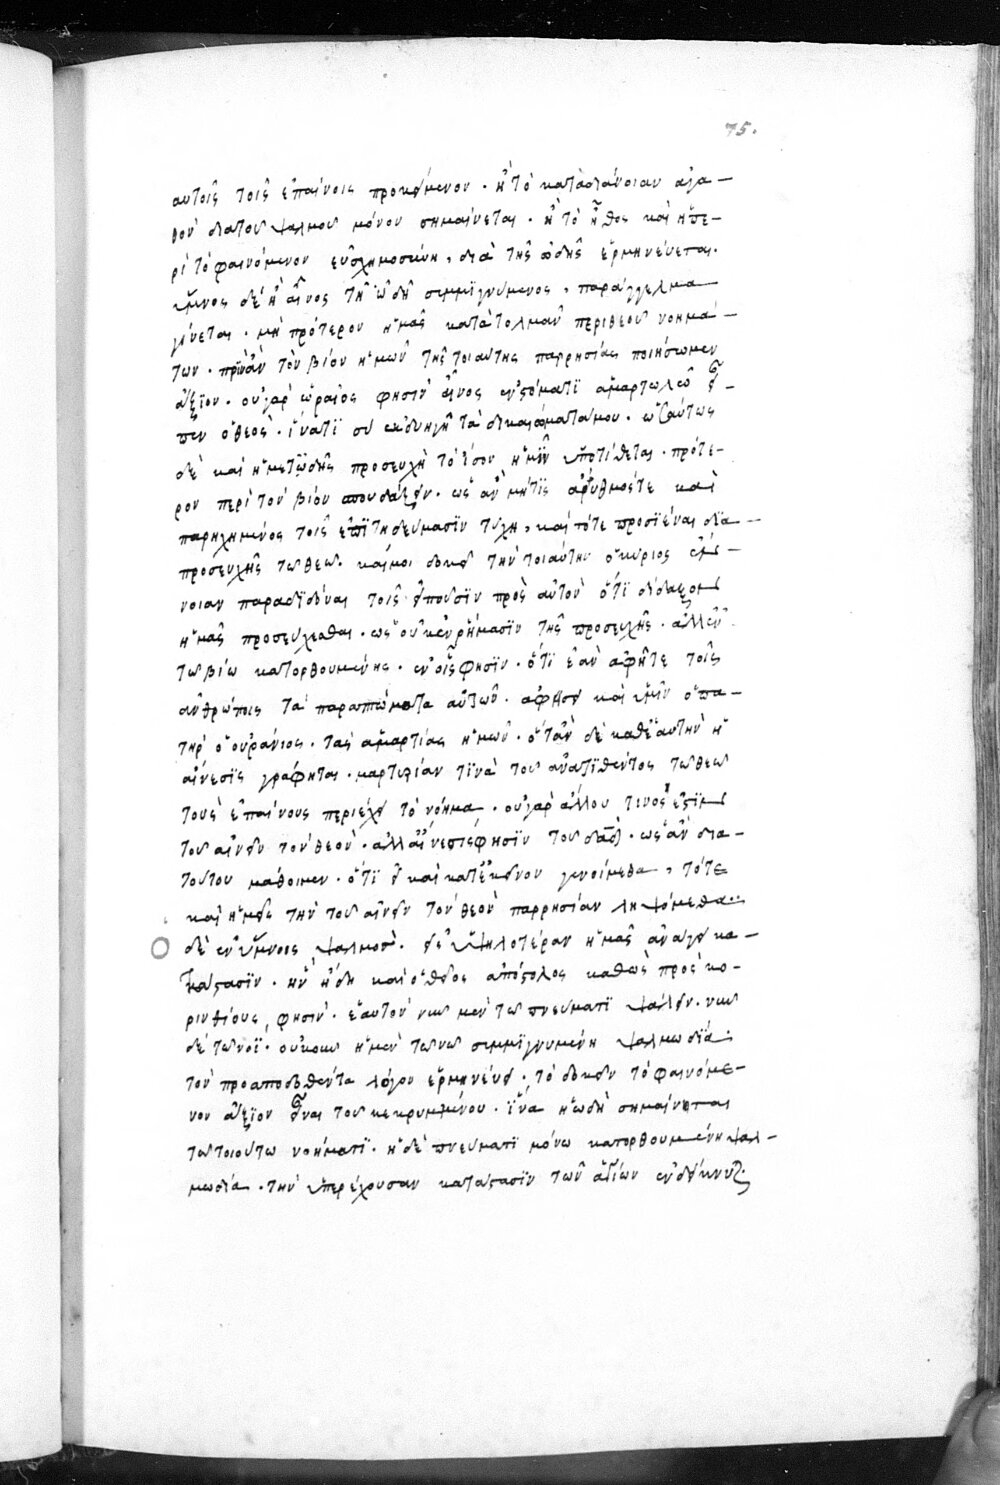 75.
αυτοῖς τοῖς ἐπαίνοις προκείμενον· ἢ τὸ κατὰ διάνοιαν ἀγα–
θὸν διὰ τοῦ ψαλμοῦ μόνου σημαίνεται· ἢ τὸ ἦθος καὶ ἡ πε–
ρὶ τὸ φαινόμενον εὐσχημοσύνη, διὰ τῆς ὠδῆς ἑρμηνεύεται.
ὕμνος δὲ ἢ αἶνος τῇ ὠδῇ συμμιγνύμενος, παράγγελμα
γίνεται· μὴ πρότερον ἡμᾶς κατατολμᾶν περὶ θεοῦ νοημά–
των· πρὶν ἂν τὸν βίον ἡμῶν τῆς τοιαύτης παρρησίας ποιήσωμεν
ἄξιον· οὐ γὰρ ὡραῖος φησὶν αἶνος ἐν στόματι ἁμαρτωλοῦ εἶ–
πεν ὁ θεός· ἱνατί σὺ ἐκδιηγῇ τὰ δικαιώματά μου· ὡσαύτως
δὲ καὶ ἡ μετ' ᾠδῆς προσευχὴ τὸ ἴσον ἡμῖν ὑποτίθεται· πρότε–
ρον περὶ τὸν βίον σπουδάζειν· ὡς ἂν μήτις ἀρύθμός τε καὶ
παρηχημένος τοῖς ἐπιτηδεύμασϊν τύχῃ, καὶ τότε προσϊέναι διὰ –
προσευχῆς τῷ θεῷ· καί μοι δοκεῖ τὴν τοιαύτην ὁ κύριος
νοιαν παραδϊδόναι τοῖς εἰποῦσϊν πρὸς αὐτὸν ὅτϊ δίδαξον
ἡμᾶς προσεύχεσθαι· ὡς οὐκ ἐν ῥήμασϊν τῆς προσευχῆς· ἀλλ' ἐν
τῷ βίῳ κατορθουμένης· ἐν οἷς φησϊν· ὅτι ἐὰν ἀφῆτε τοῖς
ἀνθρώποις τὰ παραπτώματα αὐτῶν· ἀφήσει καὶ ὑμῖν ὁ πα–
τὴρ ὁ οὐράνιος· τὰς ἁμαρτίας ἡμῶν· ὅταν δὲ καθ' ἑαυτὴν ἡ
αἴνεσϊς γράφηται· μαρτυρίαν τϊνὰ τοῦ ἀνατϊθέντος τῷ θεῷ
τοὺς ἐπαίνους περιέχει τὸ νόημα· οὐ γὰρ ἄλλου τινός ἐστϊν
τοῦ αἰνεῖν τὸν θεόν· ἀλλ' αἴνεσίς φησϊν τοῦ δαδ· ὡς ἂν δια–
τούτου μάθοιμεν· ὅτι εἰ καὶ κατ' ἐκεῖνον γενοίμεθα, τότε
καὶ ἡμεῖς τὴν τοῦ αἰνεῖν τὸν θεὸν παρρησίαν ληψόμεθα··
δὲ ἐν ὕμνοις ψαλμός· εἰς ὑψηλοτέραν ἡμᾶς ἀνάγει κα–
τάστασϊν· ἣν ᾔδει καὶ ὁ θεῖος ἀπόστολος καθὼς πρὸς κο–
ρινθίους, φησὶν· ἑαυτὸν νῦν μὲν τῷ πνεύματϊ ψάλλειν· νῦν
δὲ τῷ νοΐ· οὐκοῦν ἡ μὲν τῷ νῷ συμμϊγνυμένη ψαλμωδία·
τὸν προαποδοθέντα λόγον ἑρμηνεύει· τὸ δοκεῖν τὸ φαινόμε–
νον ἄξϊον εἶναι τοῦ κεκρυμμένου· ἵνα ἡ ὠδὴ σημαίνηται
τῷ τοιούτῳ νοήματϊ· ἡ δὲ πνεύματϊ μόνῳ κατορθουμένη ψαλ–
μωδία· τὴν ὑπερέχουσαν κατάστασϊν τῶν ἁγίων ἐνδείκνυται.